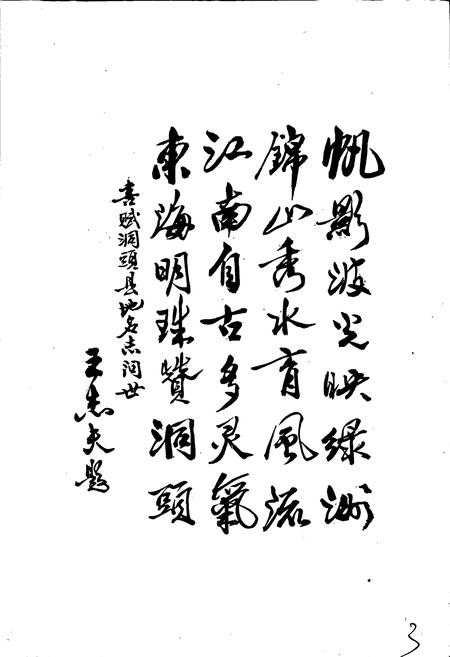 帆影波光映绿洲
錦山秀水育風流
江南自古多灵氣
東海明珠贊洞頭
喜赋洞頭县地名志问世
王志夫题
3